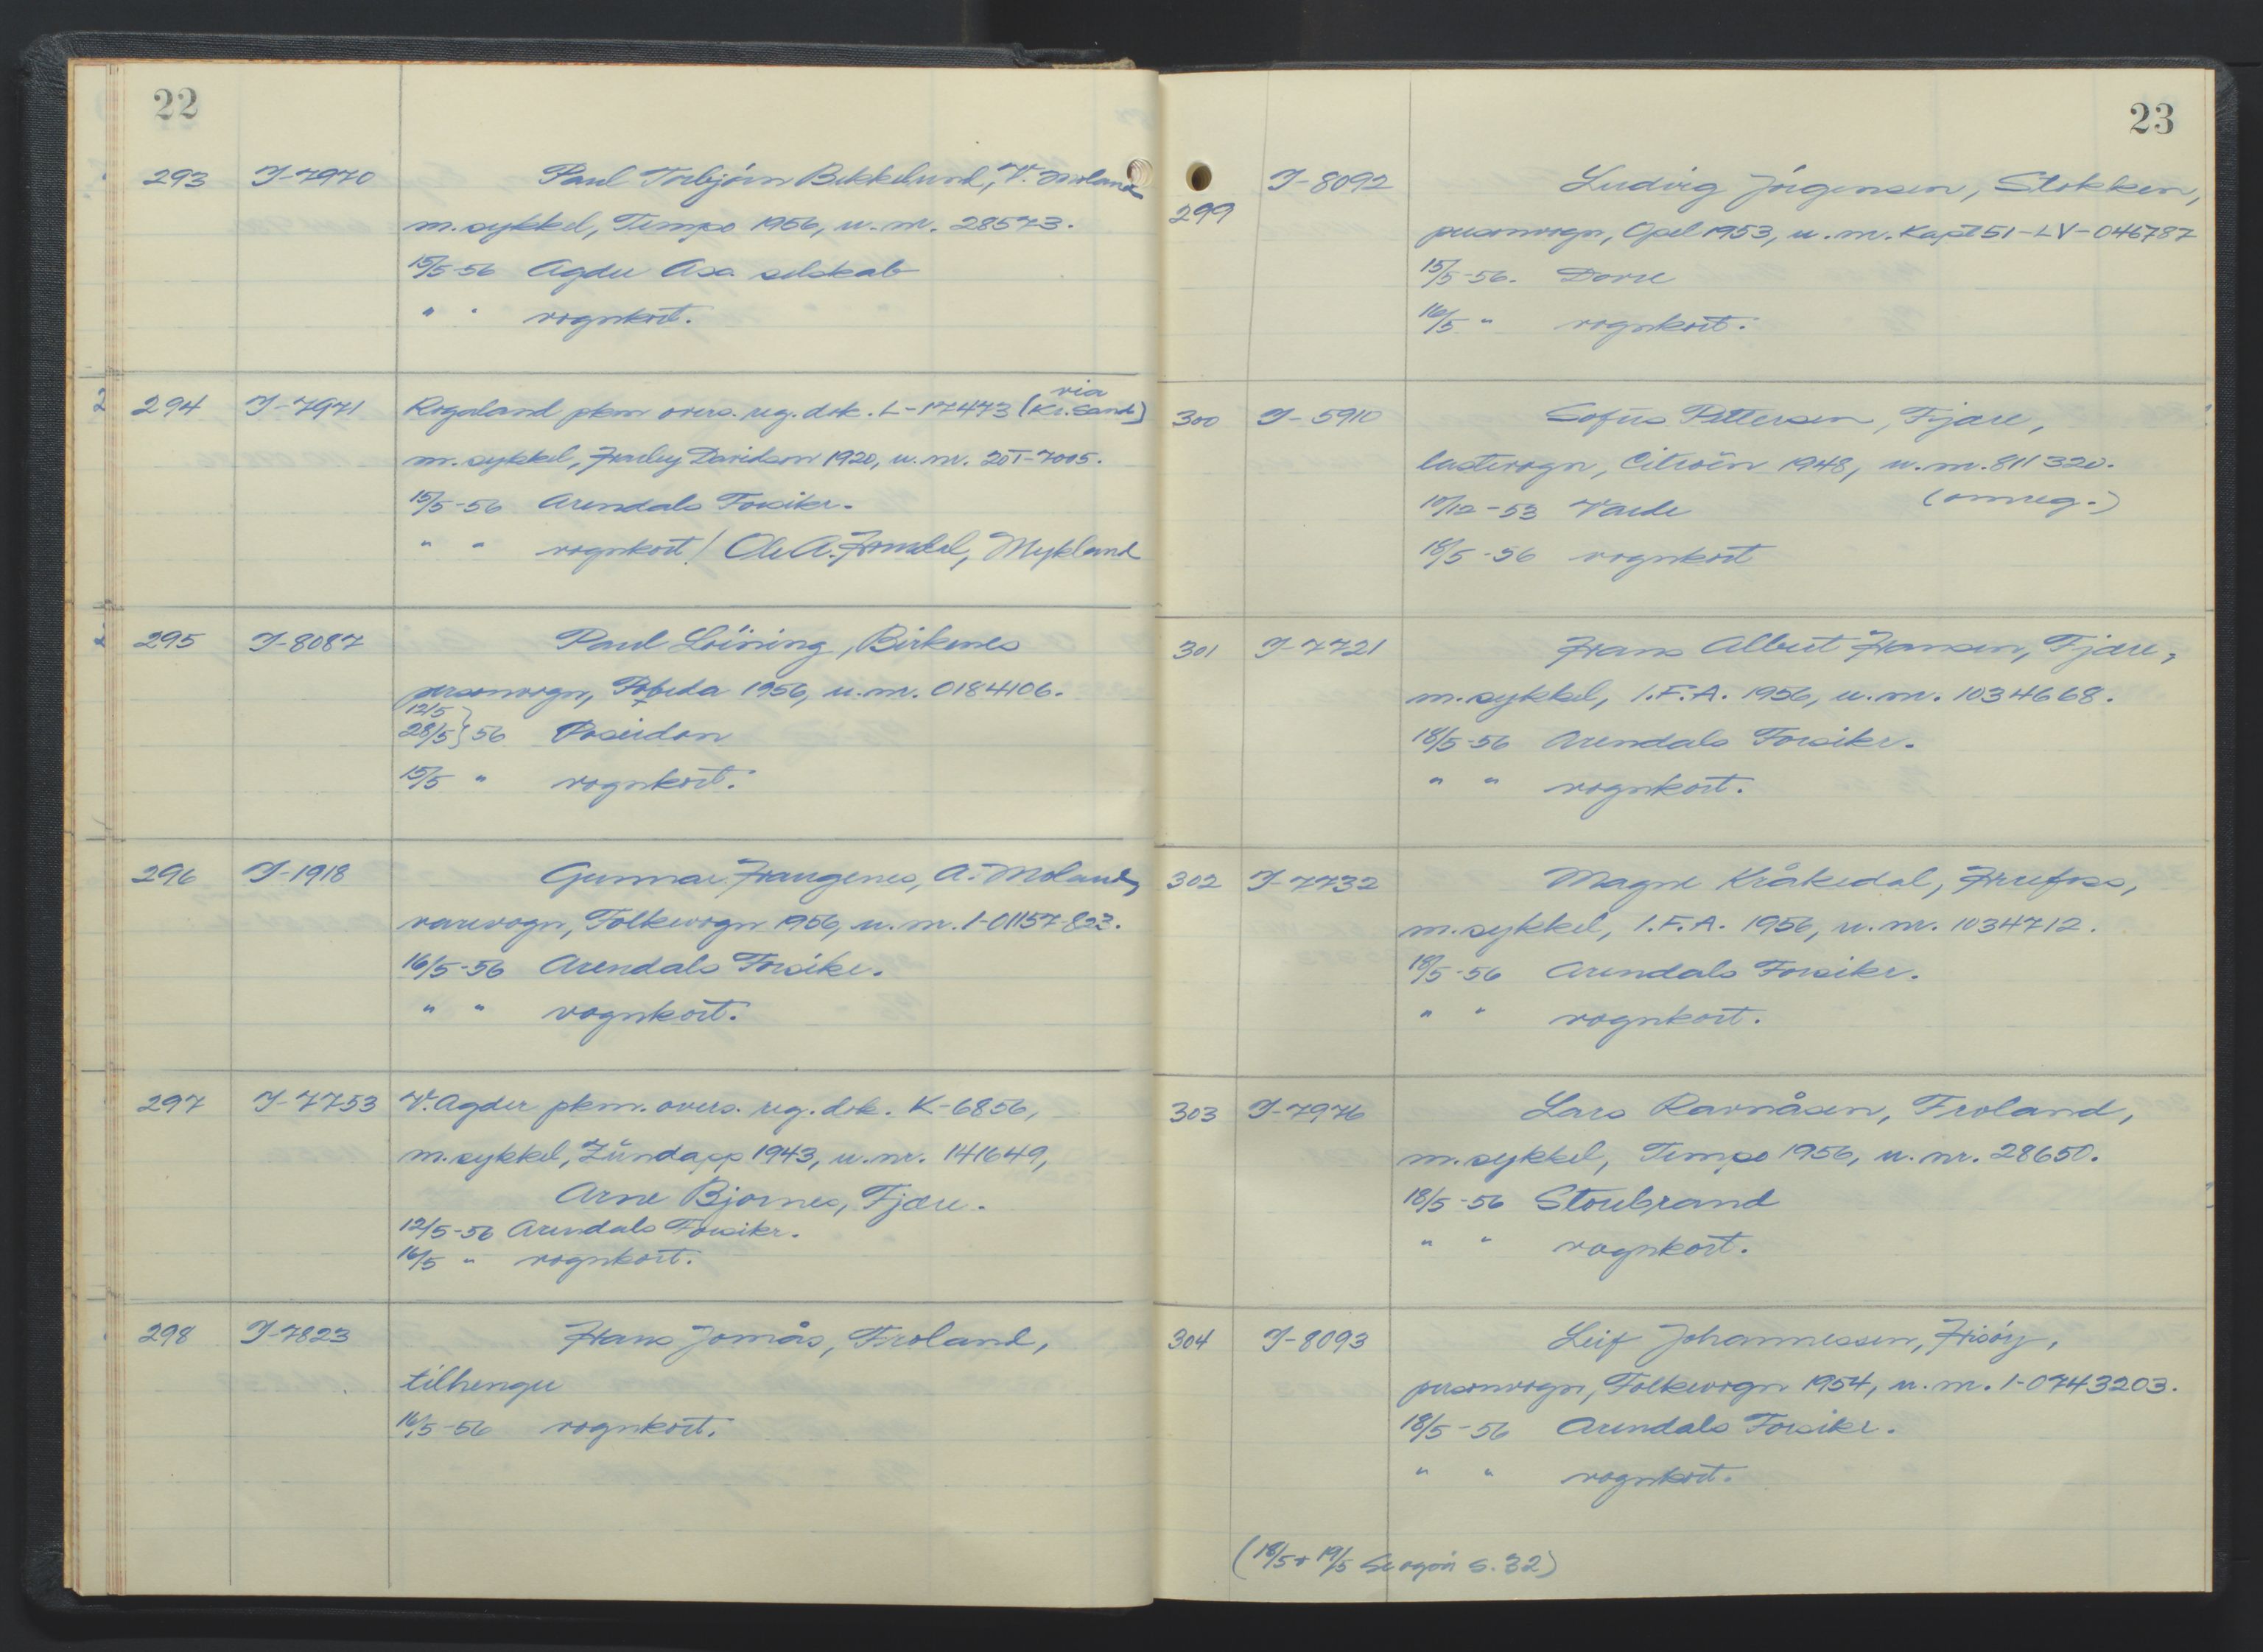 22
293 I-7970 Paul Torbjørn Bekkelund, V. Moland
m.sykkel, Tempo 1956, u.nr. 28573.
15/5-56 Agder Ass. selskab
" " vognkort.
294 I-7971 Rogaland pkm overs. reg.dok. L-17473 (via Kr.sand)
m.sykkel, Harley Davidson 1920, u.nr. 20T-7005.
15/5-56 Arendals Forsikr.
" " vognkort / Ole A. Mykland
295 I-8087 Paul Løining, Birkenes
personvogn, Pobeda 1956, u.nr. 0184106.
12/5
28/5} 56 Poseidon
15/5 " vognkort.
296 I-1918 Gunnar Haugenes, A. Moland,
varevogn, Folkevogn 1956, u.nr. 1-01157823.
16/5-56 Arendals Forsikr.
" " vognkort.
297 I-7753 V. Agder pkm. overs. reg.dok. K-6856,
m.sykkel, Zündapp 1943, u.nr. 141649,
Arne Bjornes, Fjære.
12/5-56 Arendals Forsikr.
16/5 " vognkort.
298 I-7823 Hans Jomås, Froland,
tilhenger
16/5-56 vognkort.
23
299 I-8092 Ludvig Jørgensen, Stokken,
personvogn, Opel 1953, u.nr. Kapt 51-LV-046787
15/5-56. Dovre
16/5 " vognkort.
300 I-5910 Sofus Pettersen, Fjære,
lastevogn, Citroën 1948, u.nr. 811320.
10/12-53 Varde (omreg.)
18/5-56 vognkort
301 I-7721 Hans Albert Hansen, Fjære,
m.sykkel, I.F.A. 1956, u.nr. 1034668.
18/5-56 Arendals Forsikr.
" " vognkort.
302 I-7732 Magne Kråkedal, Herefoss,
m.sykkel, I.F.A. 1956, u.nr. 1034712.
18/5-56 Arendals Forsikr.
" " vognkort.
303 I-7976 Lars Ravnåsen, Froland,
m.sykkel, Tempo 1956, u.nr. 28650.
18/5-56 Storebrand
" " vognkort.
304 I-8093 Leif Johannessen, Hisøy,
personvogn, Folkevogn 1954, u.nr. 1-0743203.
18/5-56 Arendals Forsikr.
" " vognkort.
(18/5 + 19/5 Se også s. 32)